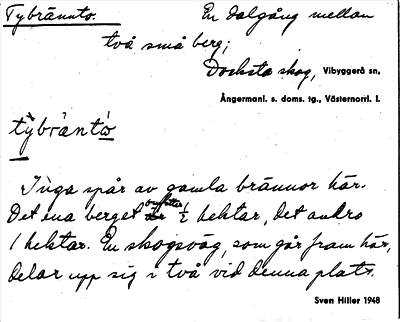 Tybrännto. En dalgång mellan
två små berg;
Docksta skog, Vibyggerå sn,
Ångermanl. s. doms. tg., Västernorrl. l.
tỳbräǹtò
Inga spår av gamla brännor här.
Det ena berget omfattar ½ hektar, det andra
1 hektar. En skogsväg, som går fram här,
delar upp sig i två vid denna plats.
Sven Hiller 1948